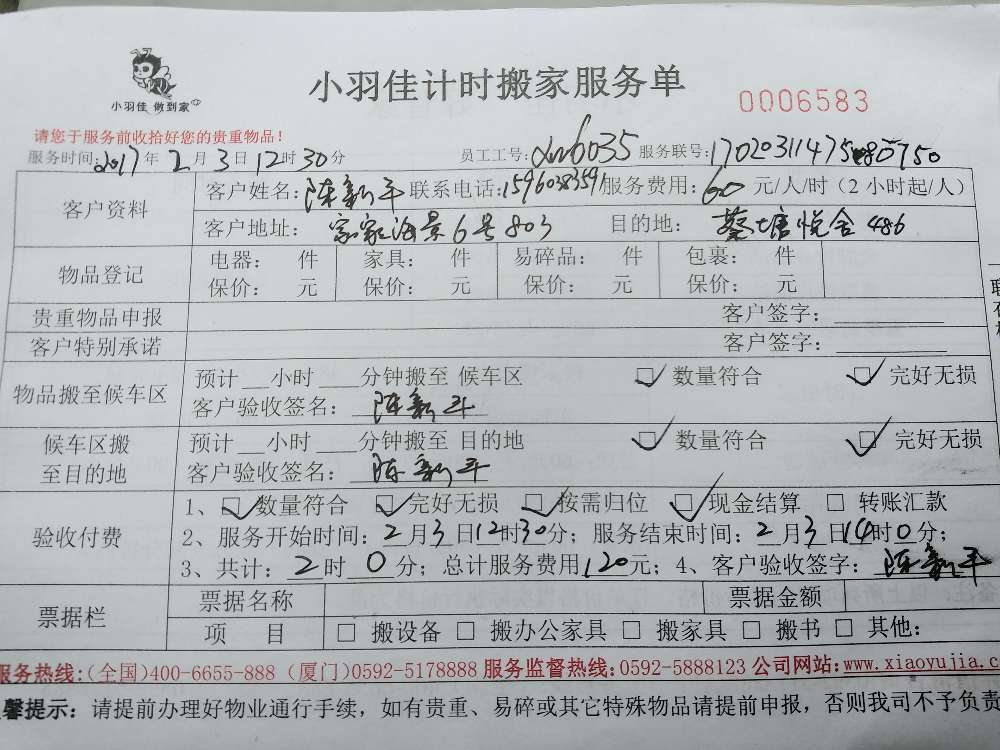 小羽佳 做到家
小羽佳计时搬家服务单
0006583
请您于服务前收拾好您的贵重物品！
服务时间：2017年2月3日12时30分 员工工号： 服务联号：
客户资料 客户姓名：陈新平 联系电话：15960383591 服务费用：60元/人/时（2小时起/人）
客户地址： 6号803 目的地：蔡塘悦舍486
物品登记 电器： 件 家具： 件 易碎品： 件 包裹： 件
保价： 元 保价： 元 保价： 元 保价： 元
贵重物品申报 客户签字：
客户特别承诺 客户签字：
物品搬至候车区 预计__小时___分钟搬至 候车区 ☑ 数量符合 ☑ 完好无损
客户验收签名：陈新平
候车区搬至目的地 预计__小时___分钟搬至 目的地 ☑ 数量符合 ☑ 完好无损
客户验收签名：陈新平
验收付费 1、☑数量符合 ☑完好无损 ☑按需归位 ☑现金结算 □ 转账汇款
2、服务开始时间：2月3日12时30分；服务结束时间：2月3日14时0分；
3、共计：2时0分；总计服务费用120元；4、客户验收签字：陈新平
票据栏 票据名称 票据金额
项 目 □ 搬设备 □ 搬办公家具 □ 搬家具 □ 搬书 □ 其他：
服务热线：(全国)400-6655-888 (厦门)0592-5178888 服务监督热线：0592-5888123 公司网站：www.xiaoyujia.c
馨提示：请提前办理好物业通行手续，如有贵重、易碎或其它特殊物品请提前申报，否则我司不予负责